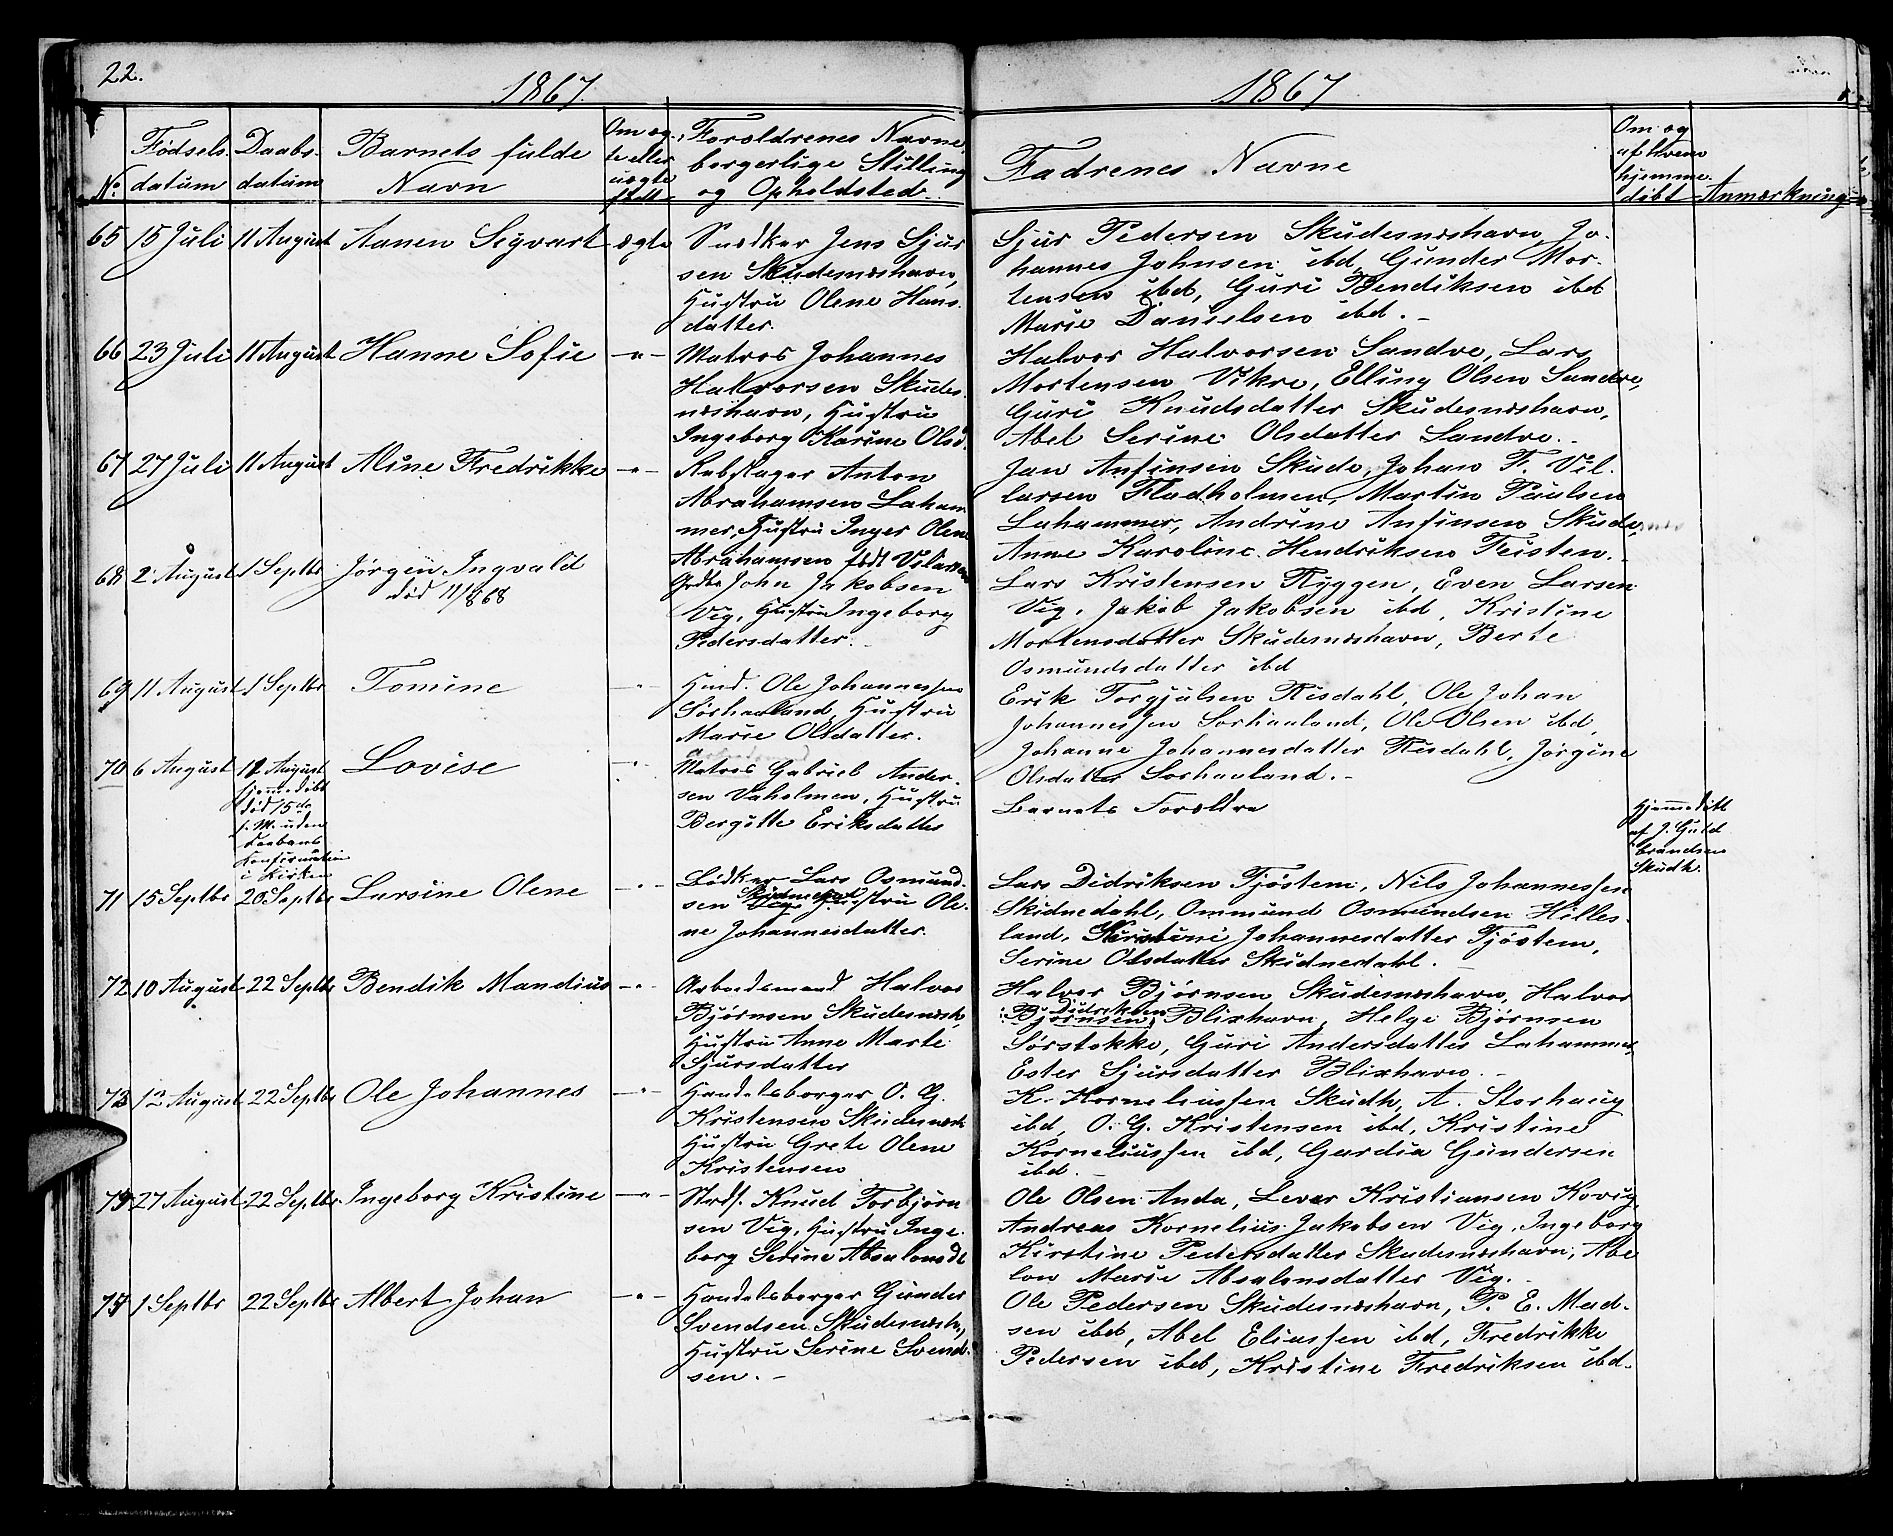 22.
1867.
1867
No
Fødsels-
datum
Daabs-
datum
Barnets fulde
Navn
Om æg-
te eller
uægte
født
Forældrenes Navne,
borgerlige Stilling
og Opholdsted
Fadrenes Navne
Om og
af hvem
hjemme-
døbt
Anmærkning
65 15 Juli 11 August Aanen Sigvart ægte
Snedker Jens Sjur
sen Skudesnæshavn,
Hustru Olene Hans
datter
Sjur Pedersen Skudesnæshavn, Jo-
hannes Johnsen ibd, Gunder Mor-
tensen ibd, Guri Bendiksen ibd
Marie Danielsen ibd. -
66 23 Juli 11 August Hanne Sofie -"-
Matros Johannes
Halvorsen Skudes
næshavn, Hustru
Ingeborg Karine Olsd.
Halvor Halvorsen Sandve, Lars
Mortensen Vikre, Elling Olsen Sandve,
Guri Knudsdatter Skudesnæshavn,
Abel Serine Olsdatter Sandve.
67 27 Juli 11 August Aline Fredrikke -"-
Rebslager Anton
Abrahamsen Laham
mer, Hustru Inger Olene
Abrahamsen født Vilarsen
Jan Anfinsen Skude, Johan F. Vil-
larsen Fladholmen, Martin Paulsen
Lahammer, Andrine Anfinsen Skude,
Anne Karoline Hendriksen Feisten.
68 2 August 1 Septbr Jørgen Ingvald
død 11/8 68
John Jakobsen
Vig, Hustru Ingeborg
Pedersdatter.
Lars Kristensen Ryggen, Even Larsen
Vig, Jakob Jakobsen ibd, Kristine
Mortensdatter Skudesnæshavn, Berte
Osmundsdatter ibd
69 11 August 1 Septbr Tomine -"-
Hmd. Ole Johannessen
Sørhaaland, Hustru
Marie Olsdatter.
Erik Torgjulsen Risdahl, Ole Johan
Johannessen Sørhaaland, Ole Olsen ibd,
Johanne Johannesdatter Risdahl, Jørgine
Olsdatter Sørhaaland. -
70 6 August 12 August Lovise -"-
hjemmedøbt
død 15 do
s. M. uden
Daabens
Konfirmation
i Kirken
Matros Gabriel Ander-
sen Vaholmen, Hustru
Bergitte Eriksdatter
Barnets Forældre
Hjemmedøbt
af J. Guld
brandsen
Skudh.
71 15 Septbr 20 Septbr Larsine Olene -"-
Bødker Lars Osmund-
sen Vig Hustru Ole-
ne Johannesdatter.
Lars Didriksen Tjøstem, Nils Johannessen
Skidnedahl, Ommund Osmundsen Hilles-
land, Kirstine Johannesdatter Tjøstem,
Serine Olsdatter Skidnedahl. -
72 10 August 22 Septbr Bendik Mandius -"-
Arbeidsmand Halvor
Bjørnsen Skudesnæsh,
Hustru Anne Marte
Sjursdatter
Halvor Bjørnsen Skudesnæshavn, Halvor
Didriksen
Bjørnsen, Blixhavn, Helge Bjørnsen
Sørstokke, Guri Andersdatter Lahammer,
Ester Sjursdatter Blixhavn. -
73 12 August 22 Septbr Ole Johannes -"-
Handelsborger O. G.
Kristensen Skudesnæsh
Hustru Grete Olene
Kristensen
K. Korneliussen Skudh, A. Storhaug
ibd, O. G. Kristensen ibd, Kristine
Korneliussen ibd, Gardia Gundersen
ibd. -
74 27 August 22 Septbr Ingeborg Kristine -"-
Strds. Knud Torbjørn
sen Vig, Hustru Inge-
borg Serine Absalonsdt
Ole Olsen Anda, Lever Kristiansen Kovig
Andreas Kornelius Jakobsen Vig, Ingeborg
Kirstine Pedersdatter Skudesnæshavn, Abe
lon Marie Absalonsdatter Vig. -
75 1 Septbr 22 Septbr Albert Johan -"-
Handelsborger Gunder
Svendsen Skudesnæsh,
Hustru Serine Svend-
sen. -
Ole Pedersen Skudesnæshavn, P. E. Mad-
sen ibd, Abel Eliassen ibd, Fredrikke
Pedersen ibd, Kristine Fredriksen ibd.